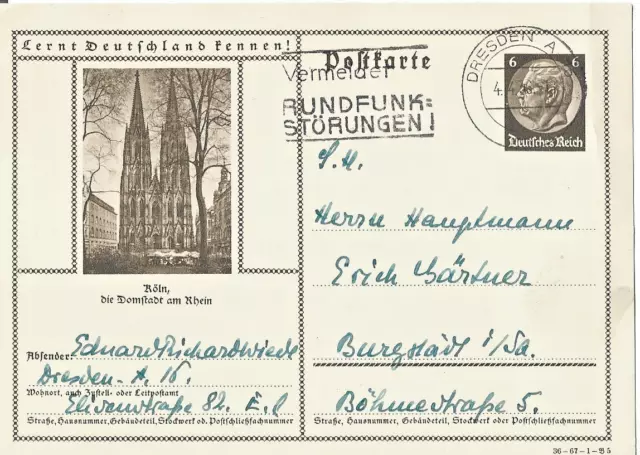 Lernt Deutschland kennen!
Postkarte
Vermeidet
RUNDFUNK=
STÖRUNGEN!
DRESDEN A
4.4.
6 6
Deutsches Reich
S. H.
Herrn Hauptmann
Erich Gärtner
Burgstädt i/Sa.
Böhmestraße 5.
Straße, Hausnummer, Gebäudeteil, Stockwerk oder Postschließfachnummer
Köln,
die Domstadt am Rhein
Absender: Eduard Richard Wiede
Dresden-A. 16.
Wohnort, auch Zustell- oder Leitpostamt
Elisenstraße 82. E. l
Straße, Hausnummer, Gebäudeteil, Stockwerk od. Postschließfachnummer
36-67-1-B5